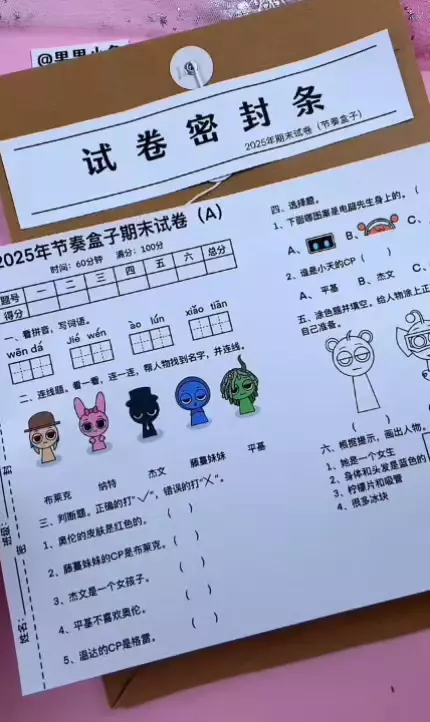 @果果小鱼
试卷密封条
2025年期末试卷（节奏盒子）
2025年节奏盒子期末试卷（A）
时间：60分钟 满分：100分
题号 一 二 三 四 五 六 总分
得分
一、看拼音，写词语。
wēn dá Jié wén ào lún xiǎo tiān
二、连线题。看一看，连一连，帮人物找到名字，并连线。
布莱克 纳特 杰文 藤蔓妹妹 平基
三、判断题。正确的打“√”，错误的打“×”。
1、奥伦的皮肤是红色的。（ ）
2、藤蔓妹妹的CP是布莱克。（ ）
3、杰文是一个女孩子。（ ）
4、平基不喜欢奥伦。（ ）
5、温达的CP是格雷。（ ）
四、选择题。
1、下面哪图案是电脑先生身上的。（
A、 B、 C、
2、谁是小天的CP（ ）
A、平基 B、杰文 C、
五、涂色题并填空。给人物涂上正
自己准备。
（ ） （
六、根据提示，画出人物。
1、她是一个女生
2、身体和头发是蓝色的
3、柠檬片和吸管
4、很多冰块
班级：
姓名：
密
封